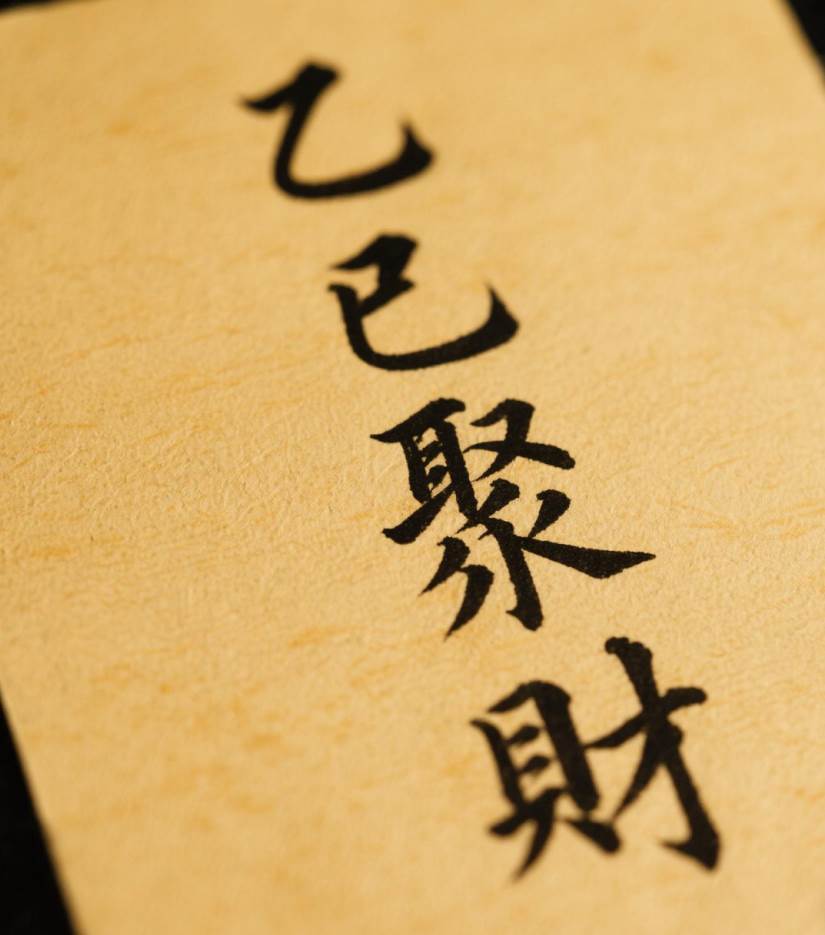 乙巳聚財